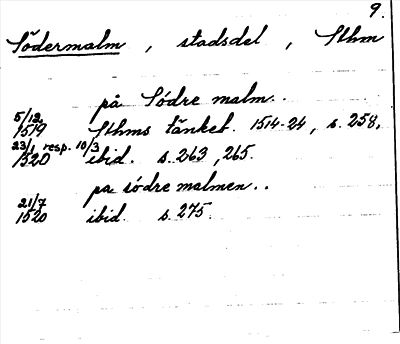 9.
Södermalm, stadsdel, Sthm
på Södre malm..
5/12 1519 Sthms tänkeb. 1514-24, s. 258.
23/1 resp. 10/3 1520 ibid. s. 263, 265.
pa södre malmen..
21/7 1520 ibid. s. 275.